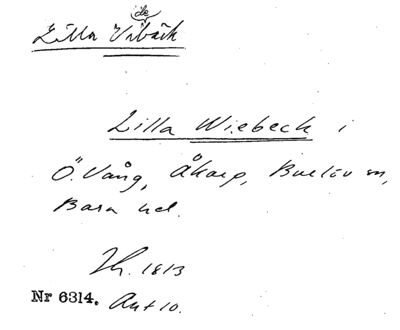 de
Lilla Vibäck
Lilla Wiebeck i
Ö. Vång, Åkarp, Burlöv sn,
Bara hd.
Jb. 1813
Nr 6314. Ant 10.